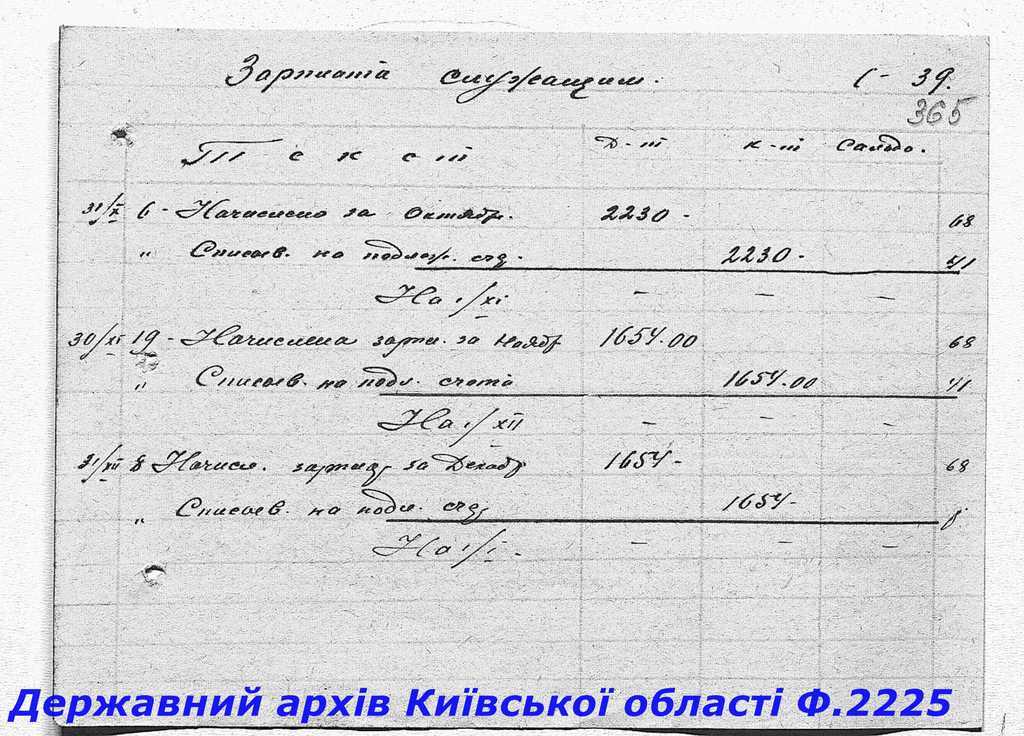 Зарплата служащим. 1-39.
365
Текст Д-т К-т Сальдо.
31/X 6 - Начислено за Октябрь. 2230 - 68
" Списыв. на подлеж. счд. 2230 - 41
На 1/XI — — —
30/XI 19 - Начислена зарпл. за Ноябр 1654.00 68
" Списыв. на подл. счета 1654-00 41
На 1/XII — — —
31/XII 8 Начисл. зарплд. за Декабр 1654 - 68
" Списыв. на подл. счд, 1654-
На 1/I. — — —
Державний архів Київської області Ф.2225